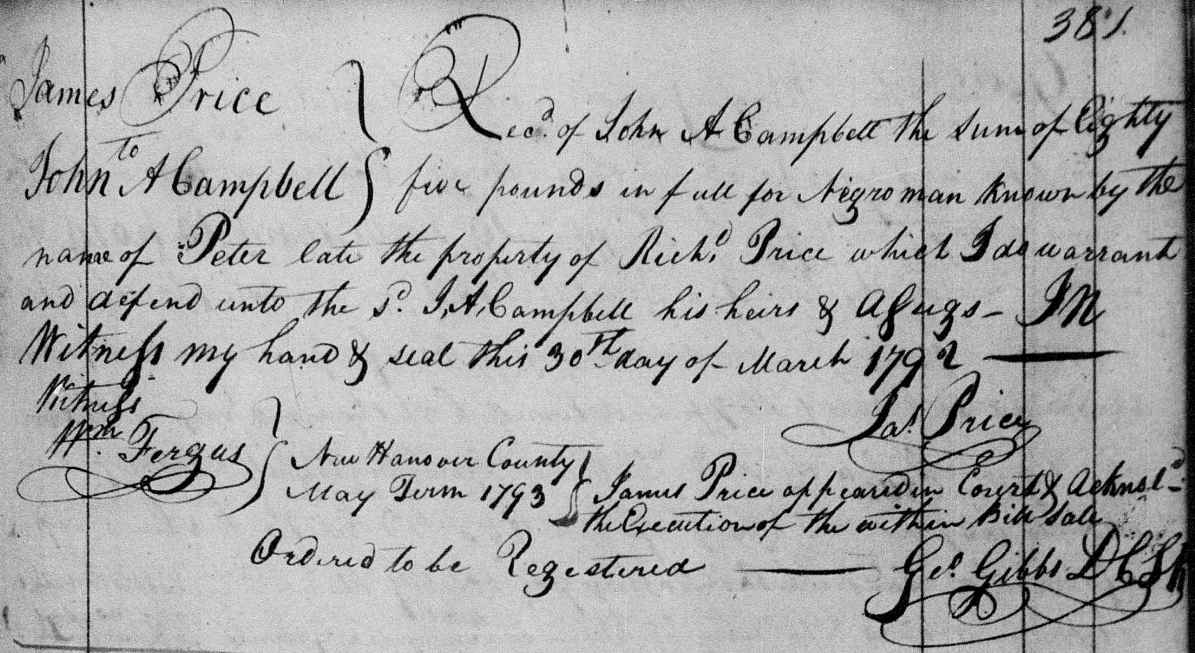 381.
James Price
to
John A Campbell
Recd. of John A Campbell the sum of Eighty
five pounds in full for Negro man known by the
name of Peter late the property of Richd. Price which I do warrant
and defend unto the sd. J. A. Campbell his heirs & Assigs – In
Witness my hand & seal this 30th day of March 1792
Jas. Price
Witness
Wm. Fergus
New Hanover County
May Term 1793
James Price appeared in Court & Acknol'd
the Execution of the within Bill Sale
Ordered to be Regestered
Geo. Gibbs D C